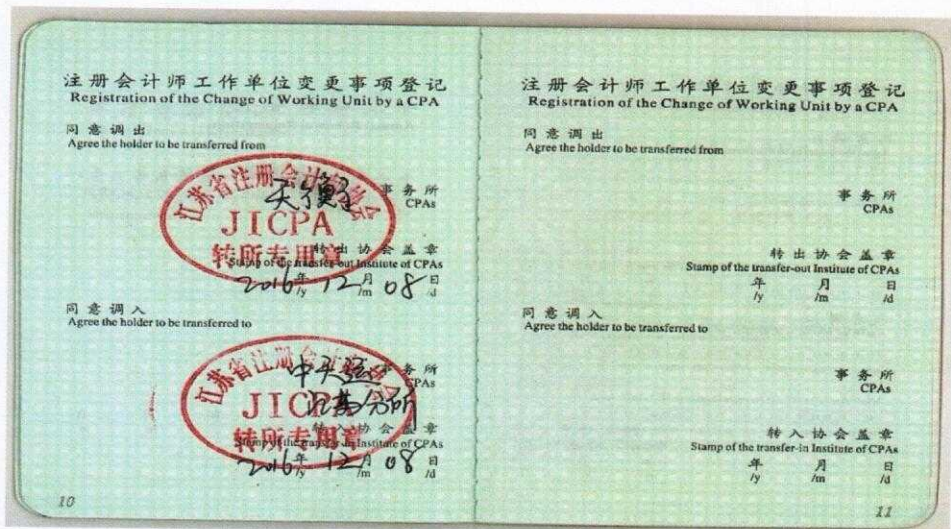 注册会计师工作单位变更事项登记
Registration of the Change of Working Unit by a CPA
同意调出
Agree the holder to be transferred from
江苏省注册会计师协会
天衡
事务所
CPAs
JICPA
转所专用章
转出协会盖章
Stamp of the transfer-out Institute of CPAs
2016年 12月 08日
/y /m /d
同意调入
Agree the holder to be transferred to
江苏省注册会计师协会
中天运
事务所
CPAs
JICPA
江苏分所
转所专用章
转入协会盖章
Stamp of the transfer-in Institute of CPAs
2016年 12月 08日
/y /m /d
10
注册会计师工作单位变更事项登记
Registration of the Change of Working Unit by a CPA
同意调出
Agree the holder to be transferred from
事务所
CPAs
转出协会盖章
Stamp of the transfer-out Institute of CPAs
年 月 日
/y /m /d
同意调入
Agree the holder to be transferred to
事务所
CPAs
转入协会盖章
Stamp of the transfer-in Institute of CPAs
年 月 日
/y /m /d
11